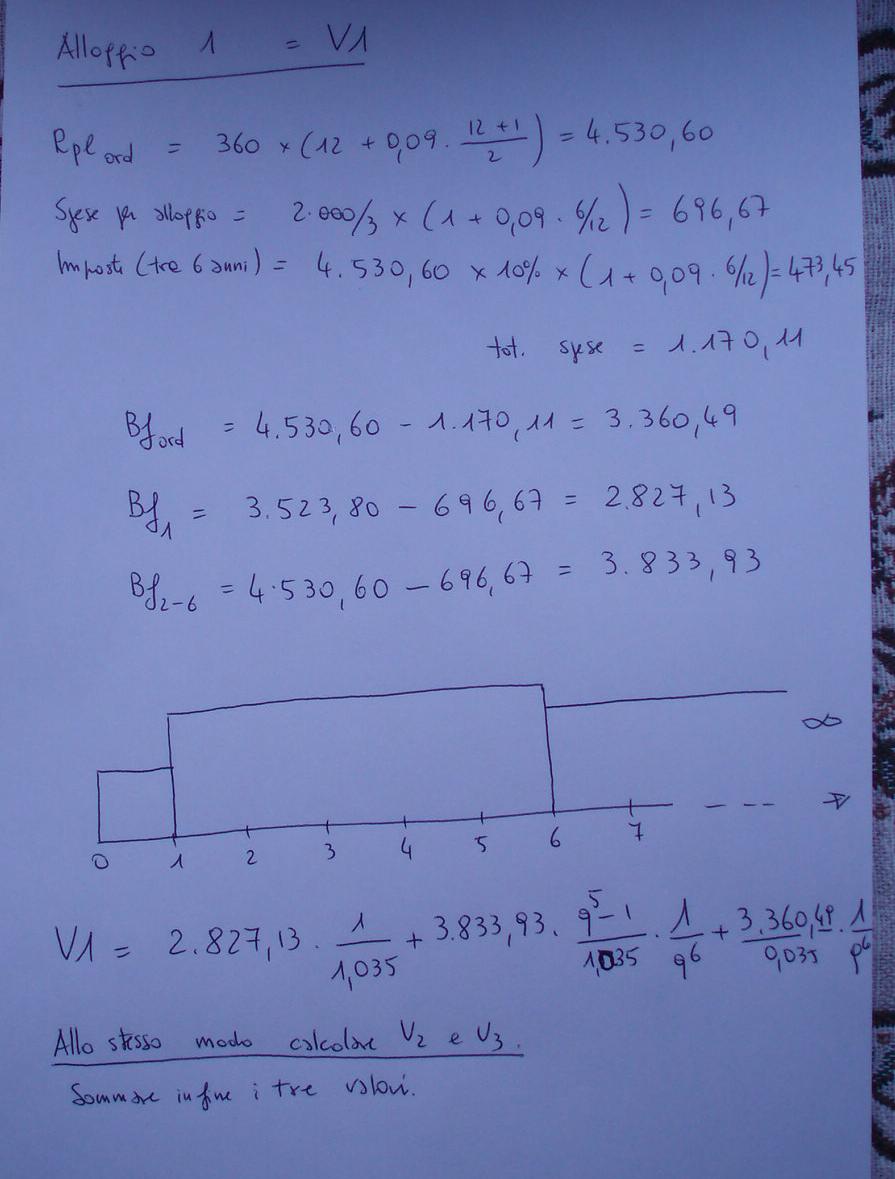 Alloggio 1 = V1
Rpl ord = 360 × (12 + 0,09 · (12 + 1)/2) = 4.530,60
Spese per alloggio = 2.000/3 × (1 + 0,09 · 6/12) = 696,67
Imposte (tre 6 anni) = 4.530,60 × 10% × (1 + 0,09 · 6/12) = 473,45
tot. spese = 1.170,11
Bf ord = 4.530,60 - 1.170,11 = 3.360,49
Bf1 = 3.523,80 - 696,67 = 2.827,13
Bf2-6 = 4.530,60 - 696,67 = 3.833,93
∞
0 1 2 3 4 5 6 7
V1 = 2.827,13 · 1/1,035 + 3.833,93 · (q^5 - 1)/1,035 · 1/q^6 + 3.360,49/0,035 · 1/q^6
Allo stesso modo calcolare V2 e V3.
Sommare infine i tre valori.